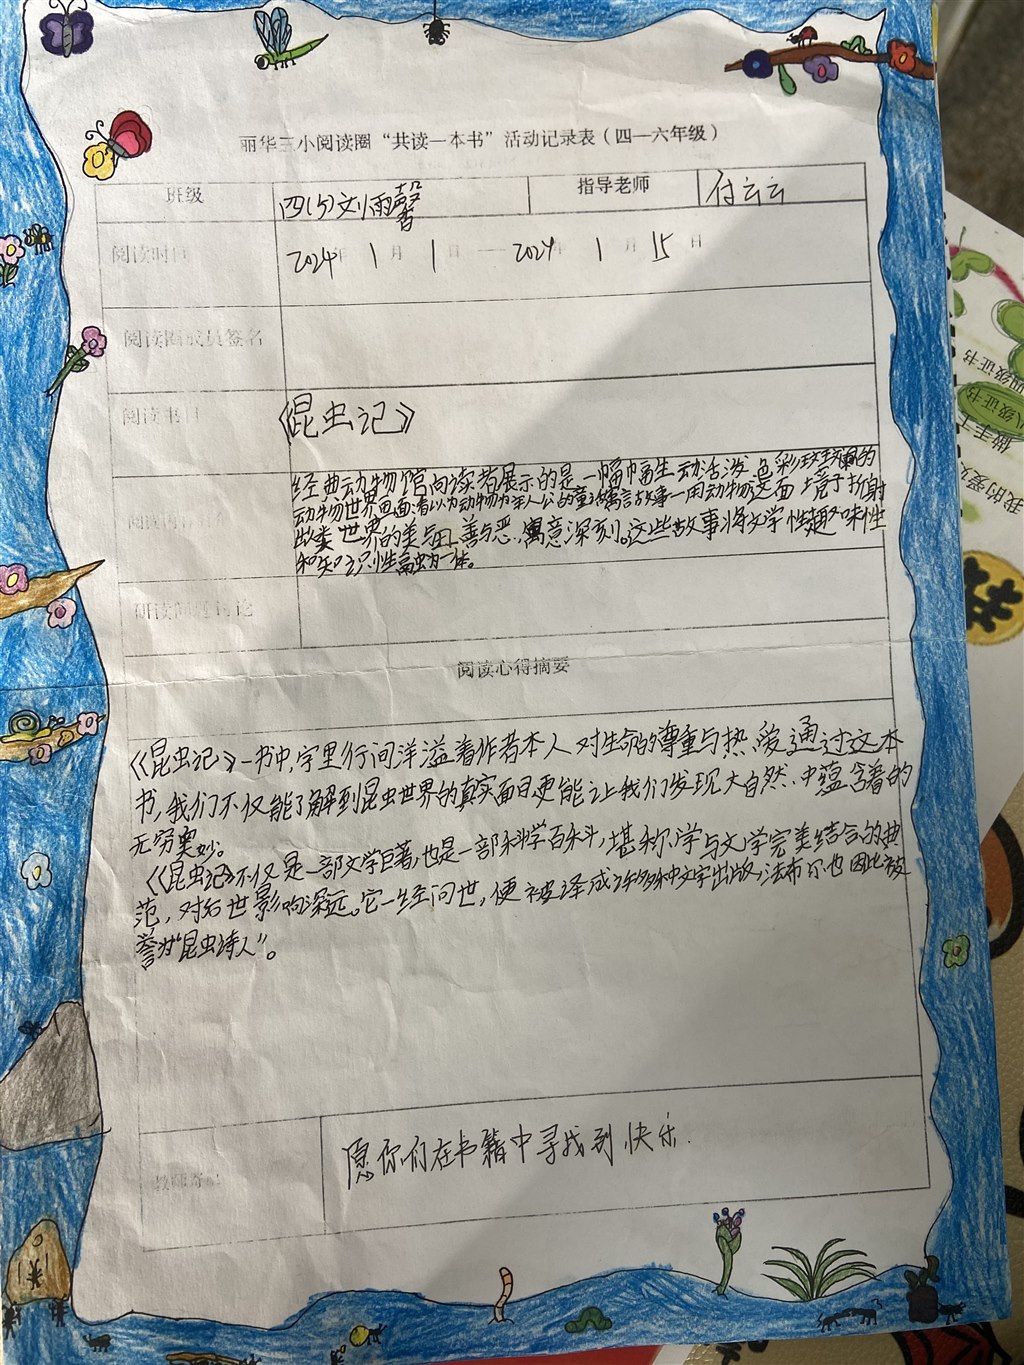 丽华三小阅读圈“共读一本书”活动记录表（四—六年级）
班级 四(5)刘雨馨 指导老师 付云云
阅读时间 2024年 1月 1日 — 2024年 1月 15日
阅读圈成员签名
阅读书目 《昆虫记》
经典动物馆向读者展示的是一幅幅生动活泼色彩斑斓的
动物世界画面,有以为动物为主人公的童话寓言故事一用动物这面镜子折射
人类世界的美与丑、善与恶,寓意深刻。这些故事将文学性趣味性
和知识性融为一体。
研读问题讨论
阅读心得摘要
《昆虫记》一书中,字里行间洋溢着作者本人对生命的尊重与热爱通过这本
书,我们不仅能了解到昆虫世界的真实面目更能让我们发现大自然中蕴含着的
无穷奥妙。
《昆虫记》不仅是一部文学巨著,也是一部科学百科,堪称学与文学完美结合的典
范,对后世影响深远。它一经问世,便被译成许多种文字出版,法布尔也因此被
誉为“昆虫诗人”。
愿你们在书籍中寻找到快乐.
我的爱
做手工
八级证书
四级证书